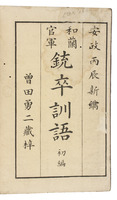 安政丙辰新鐫
和蘭
官軍
銃卒訓語
初編
曽田勇二蔵梓